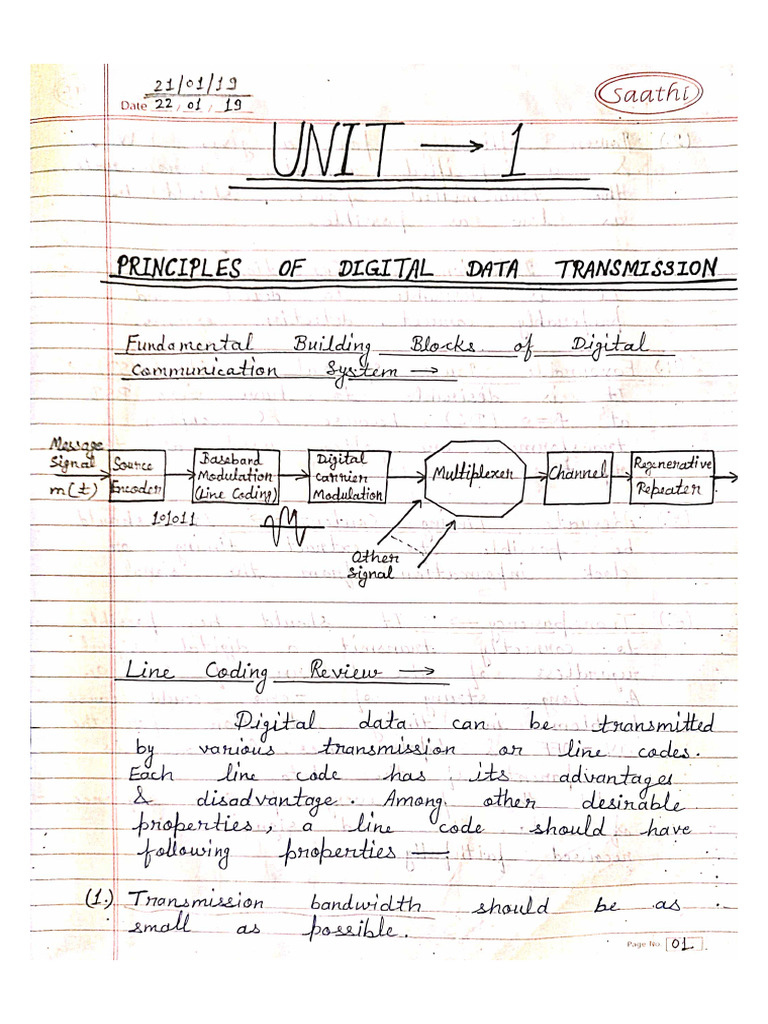 21/01/19
Date 22/01/19
Saathi
UNIT → 1
PRINCIPLES OF DIGITAL DATA TRANSMISSION
Fundamental Building Blocks of Digital
Communication System →
Message
Signal
m(t)
Source
Encoder
101011
Baseband
Modulation
(Line Coding)
Digital
Carrier
Modulation
Multiplexer
Other
Signal
Channel
Regenerative
Repeater
Line Coding Review →
Digital data can be transmitted
by various transmission or line codes.
Each line code has its advantages
& disadvantage. Among other desirable
properties, a line code should have
following properties —
(1.) Transmission bandwidth should be as
small as possible.
Page No. 01